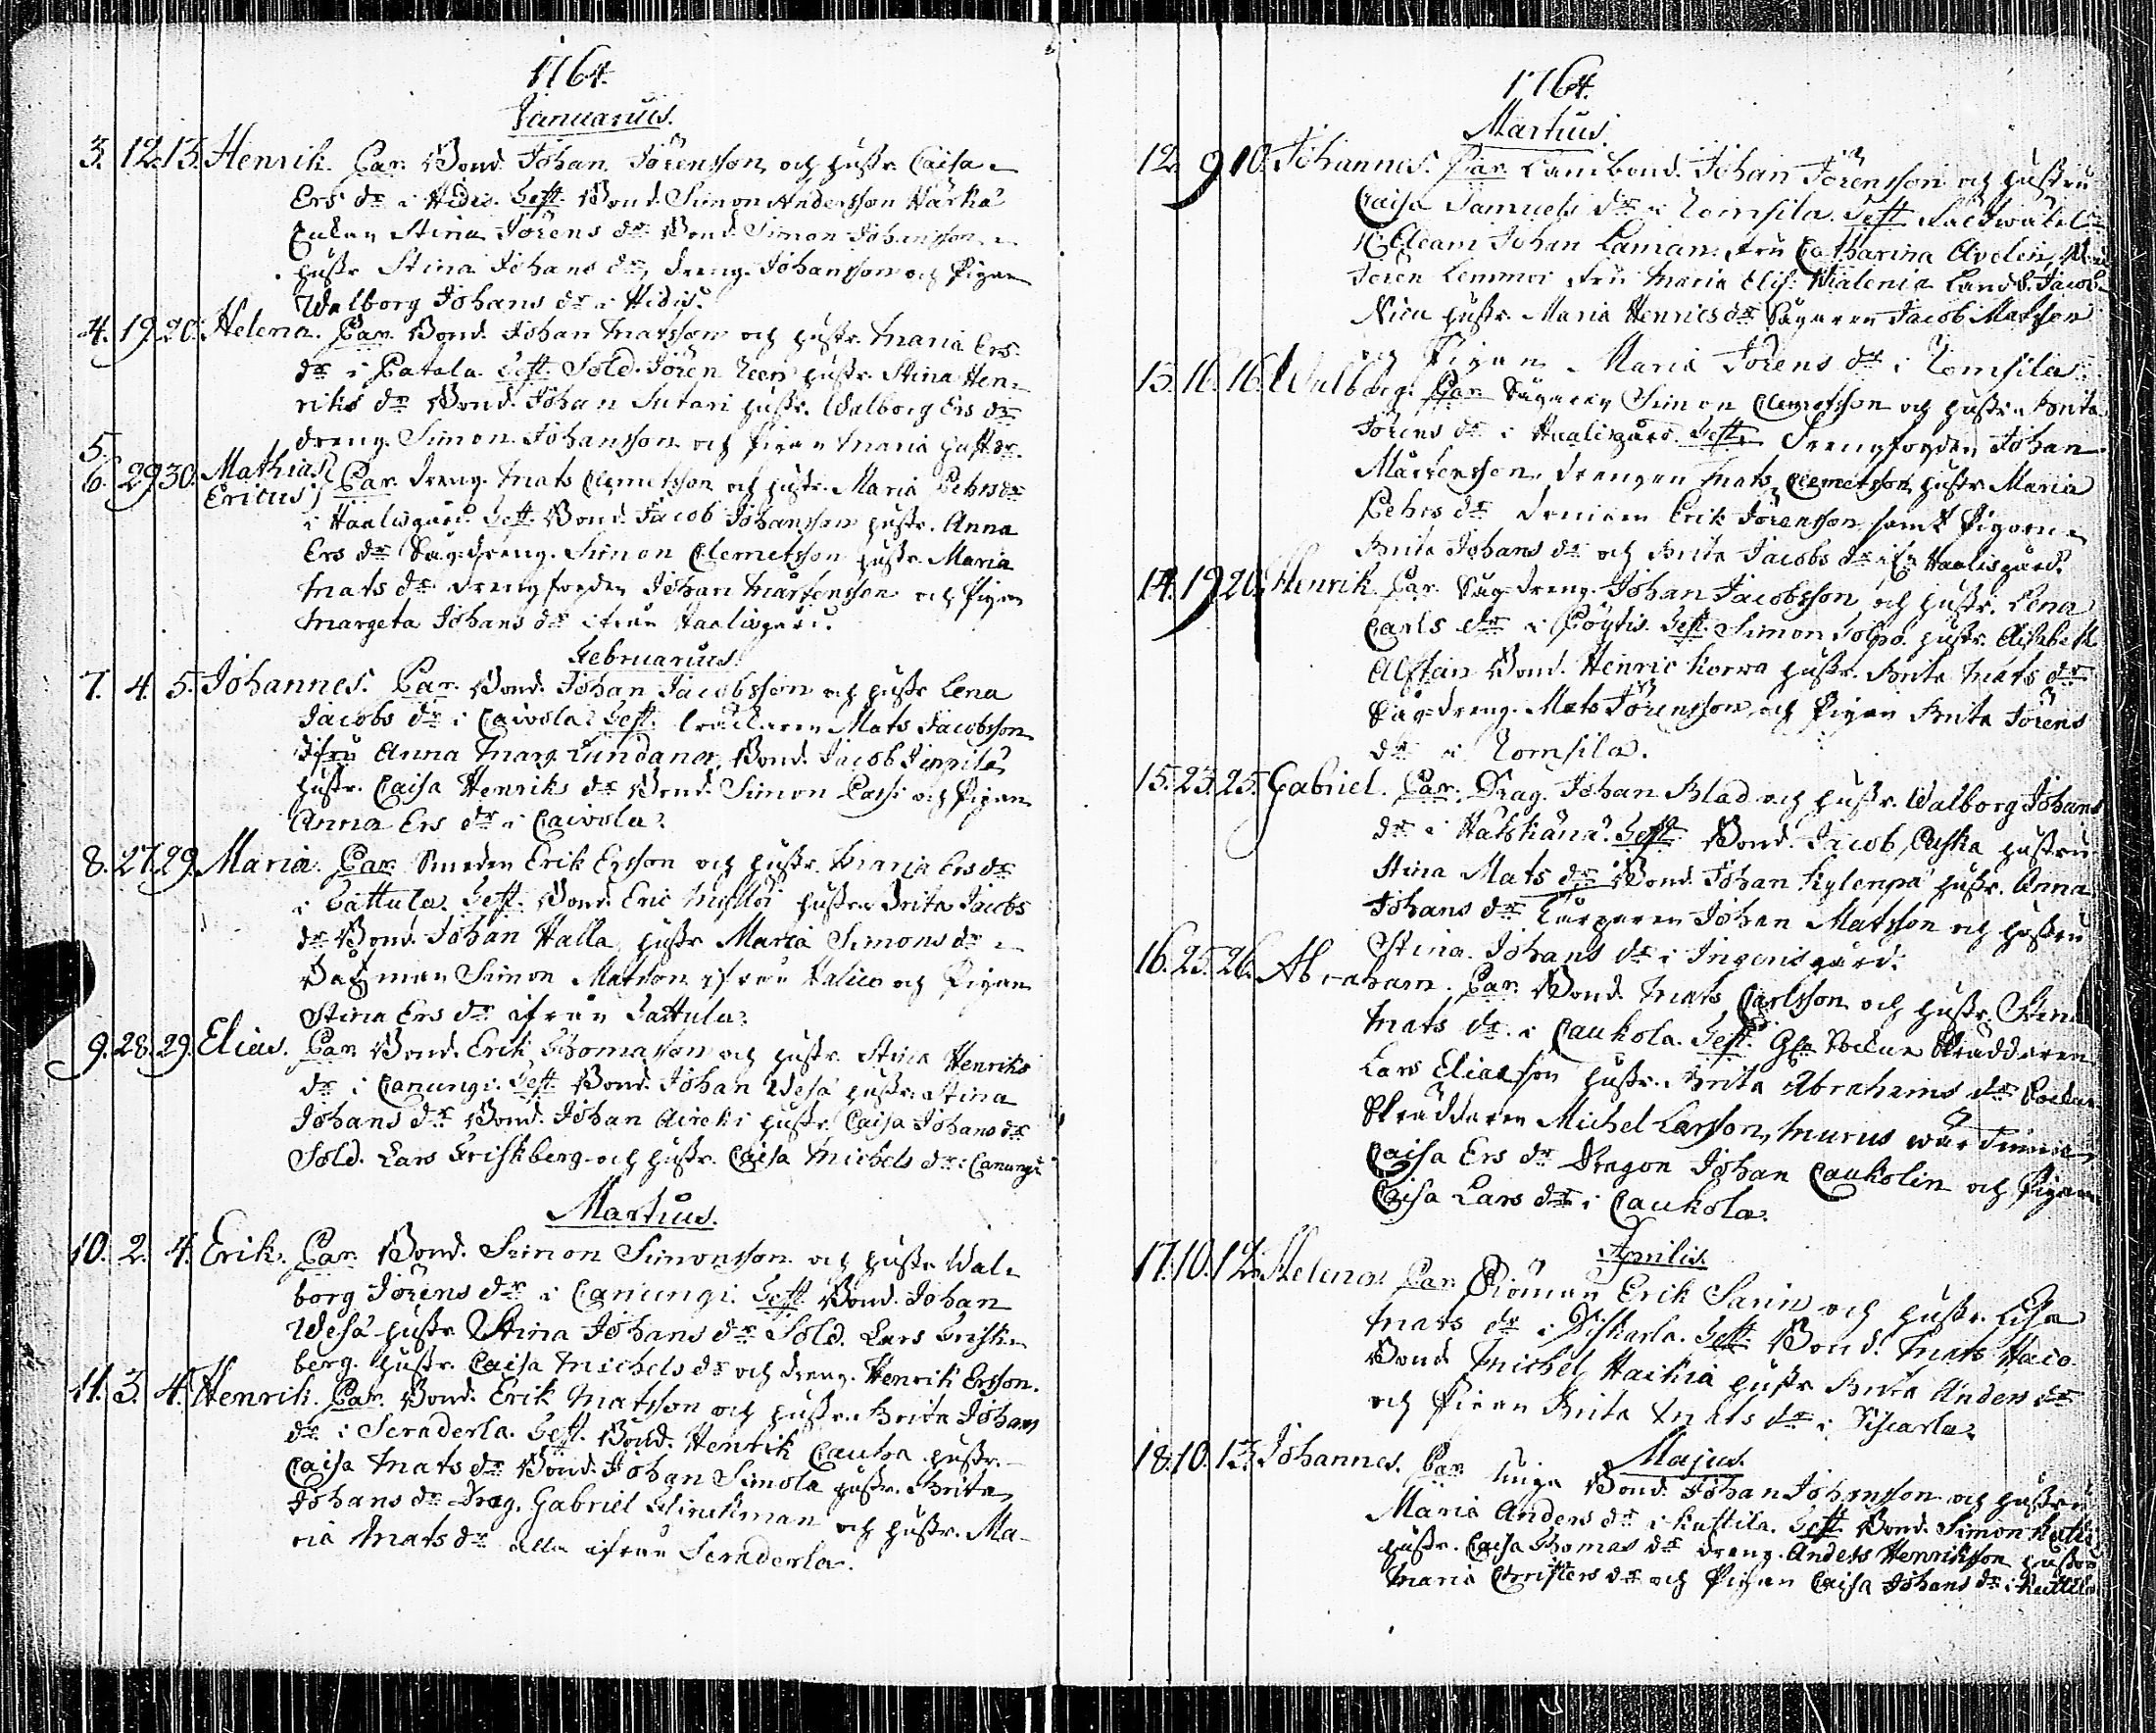 1764.
Januarius.
3. 12. 13. Henrik. Par. Bond. Johan Jörensson och hustr. Caisa
Ers dr i Hidis. Test. Bond. Simon Andersson Härkä
Enkan Stina Jörens dr Bond. Simon Johansson
hustr. Stina Johans dr, dreng. Johansson och Pigan
Walborg Johans dr i Hidis.
4. 19. 20. Helena. Par. Bond. Johan Matsson och hustr. Maria Ers
dr i Patala. Test. Sold. Jören Teen hustr. Stina Hen-
riks dr Bond. Johan Sutari hustr. Walborg Ers dr
dreng. Simon Johansson och Pigan Maria
5. Mathias
6. 29. 30. Ericus } Par. dreng. Mats Clemetsson och hustr. Maria Pehrs dr
i Haalisgård. Test. Bond. Jacob Johansson hustr. Anna
Ers dr Sågdreng. Simon Clemetsson hustr. Maria
Mats dr drengfogden Johan Mårtensson och Pigan
Margeta Johans dr ifrån Haalisgård.
Februarius.
7. 4. 5. Johannes. Par. Bond. Johan Jacobsson och hustr. Lena
Jacobs dr i Caivola. Test. Mats Jacobsson
Anna Marg. Lundana, Bond. Jacob
hustr. Caisa Henriks dr Bond. Simon Passi och Pigan
Anna Ers dr i Caivola.
8. 27. 29. Maria. Par. Smeden Erik Ersson och hustr. Maria Ers dr
i Pattula. Test. Bond. Eric hustr. Brita Jacobs
dr Bond. Johan Halla, hustr. Maria Simons dr
Båtzman Simon Matsson ifrån Halico och Pigan
Stina Ers dr ifrån Pattula.
9. 28. 29. Elias. Par. Bond. Erik Thomasson och hustr. Stina Henriks
dr i Canungi. Test. Bond. Johan Wesa hustr. Stina
Johans dr Bond. Johan Aireki hustr. Caisa Johans dr
Sold. Lars Friskberg och hustr. Caisa Michels dr i Canungi
Martius.
10. 2. 4. Erik. Par. Bond. Simon Simonsson och hustr. Wal-
borg Jörens dr i Canungi. Test. Bond. Johan
Wesa hustr. Stina Johans dr Sold. Lars Frisk-
berg. hustr. Caisa Michels dr och dreng. Henrik Ersson.
11. 3. 4. Henrik. Par. Bond. Erik Matsson och hustr. Brita Johans
dr i Seraderla. Test. Bond. Henrik Cauha hustr.
Caisa Mats dr Bond. Johan Simola hustr. Brita
Johans dr Drag. Gabriel Flinckman och hustr. Ma-
ria Mats dr alla ifrån Seraderla.
1764.
Martius.
12. 9. 10. Johannes. Par. Landbond. Johan Jörensson och hustru
Caisa Samuels dr i Romsila. Test.
Johan Laman. fru Catharina Avelin,
Jören Lemmoi fru Maria Elis. Walenia Landb. Jacob
hustr. Maria Henrics dr Sågaren Jacob Matsson
och Pigan Maria Jörens dr i Romsila.
13. 16. 16. Walborg. Par. Sågaren Simon Clemetsson och hustru Brita
Jörens dr i Haalisgård. Test. Drengfogden Johan
Mårtensson, drengen Mats Clemetsson hustr. Maria
Pehrs dr drengen Erik Jörensson samt Pigorna
Brita Johans dr och Brita Jacobs dr ifr. Haalisgård.
14. 19. 20. Henrik. Par. Sågdreng. Johan Jacobsson och hustr. Lena
Carls dr i Pöytis. Test. Simon hustr.
Bond. Henric Korva hustr. Brita Mats dr
Sågdreng. Mats Jörensson och Pigan Brita Jörens
dr i Romsila.
15. 23. 25. Gabriel. Par. Drag. Johan Blad och hustr. Walborg Johans
dr i Hätskänä. Test. Bond. Jacob hustru
Stina Mats dr Bond. Johan Kylenpä hustr. Anna
Johans dr Johan Matsson och hustru
Stina Johans dr i Ingerisgård.
16. 25. 26. Abraham. Par. Bond. Mats Carlsson och hustr.
Mats dr i Caukola. Test. Socken Skräddaren
Lars Eliasson hustr. Brita Abrahams dr Socken
Skräddaren Michel Larsson,
Caisa Ers dr Dragon Johan Caukolin och Pigan
Caisa Lars dr i Caukola.
Aprilis.
17. 10. 12. Helena. Par. Erik Sarin och hustr. Lisa
Mats dr i Viskarla. Test. Bond. Mats
Bond. Michel Haikia hustr. Brita Anders dr
och Pigan Brita Mats dr i Viscarla.
Majus.
18. 10. 13. Johannes. Par. Unga Bond. Johan Johansson och hustru
Maria Anders dr i Kuttila. Test. Bond. Simon
hustr. Caisa Thomas dr dreng. Anders Henriksson hustru
Maria Christers dr och Pigan Caisa Johans dr i Kuttila